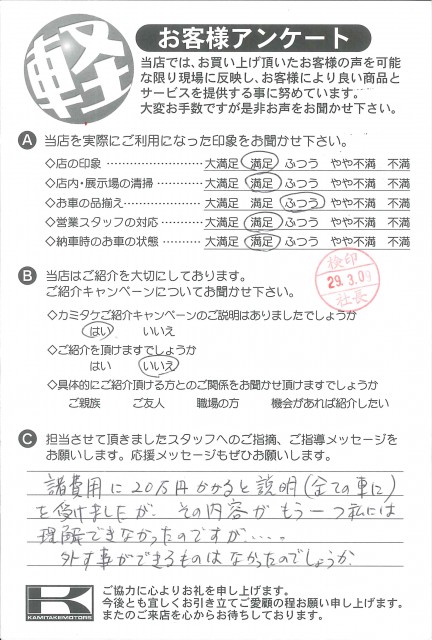 軽
お客様アンケート
当店では、お買い上げ頂いたお客様の声を可能
な限り現場に反映し、お客様により良い商品と
サービスを提供する事に努めています。
大変お手数ですが是非お声をお聞かせ下さい。
A 当店を実際にご利用になった印象をお聞かせ下さい。
◇店の印象 大満足 満足 ふつう やや不満 不満
◇店内・展示場の清掃 大満足 満足 ふつう やや不満 不満
◇お車の品揃え 大満足 満足 ふつう やや不満 不満
◇営業スタッフの対応 大満足 満足 ふつう やや不満 不満
◇納車時のお車の状態 大満足 満足 ふつう やや不満 不満
B 当店はご紹介を大切にしております。
ご紹介キャンペーンについてお聞かせ下さい。
検印
29.3.09
社長
◇カミタケご紹介キャンペーンのご説明はありましたでしょうか
はい いいえ
◇ご紹介を頂けますでしょうか
はい いいえ
◇具体的にご紹介頂ける方とのご関係をお聞かせ頂けますでしょうか
ご親族 ご友人 職場の方 機会があれば紹介したい
C 担当させて頂きましたスタッフへのご指摘、ご指導メッセージを
お願いします。応援メッセージもぜひお願いします。
諸費用に20万円かかると説明(全ての車に)
を受けましたが、その内容がもう一つ私には
理解できなかったのですが、、、。
外す事ができるものはなかったのでしょうか。
K
KAMITAKEMOTORS
ご協力に心よりお礼を申し上げます。
今後とも宜しくお引き立てご愛顧の程お願い申し上げます。
またのご来店を心からお待ちしております。